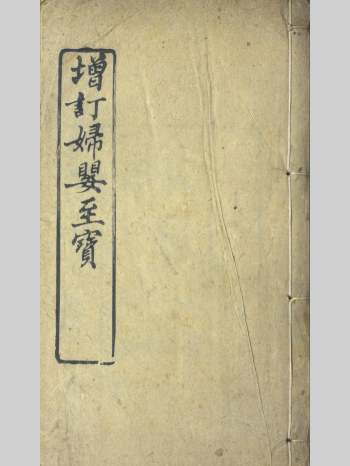 增訂婦嬰至寶